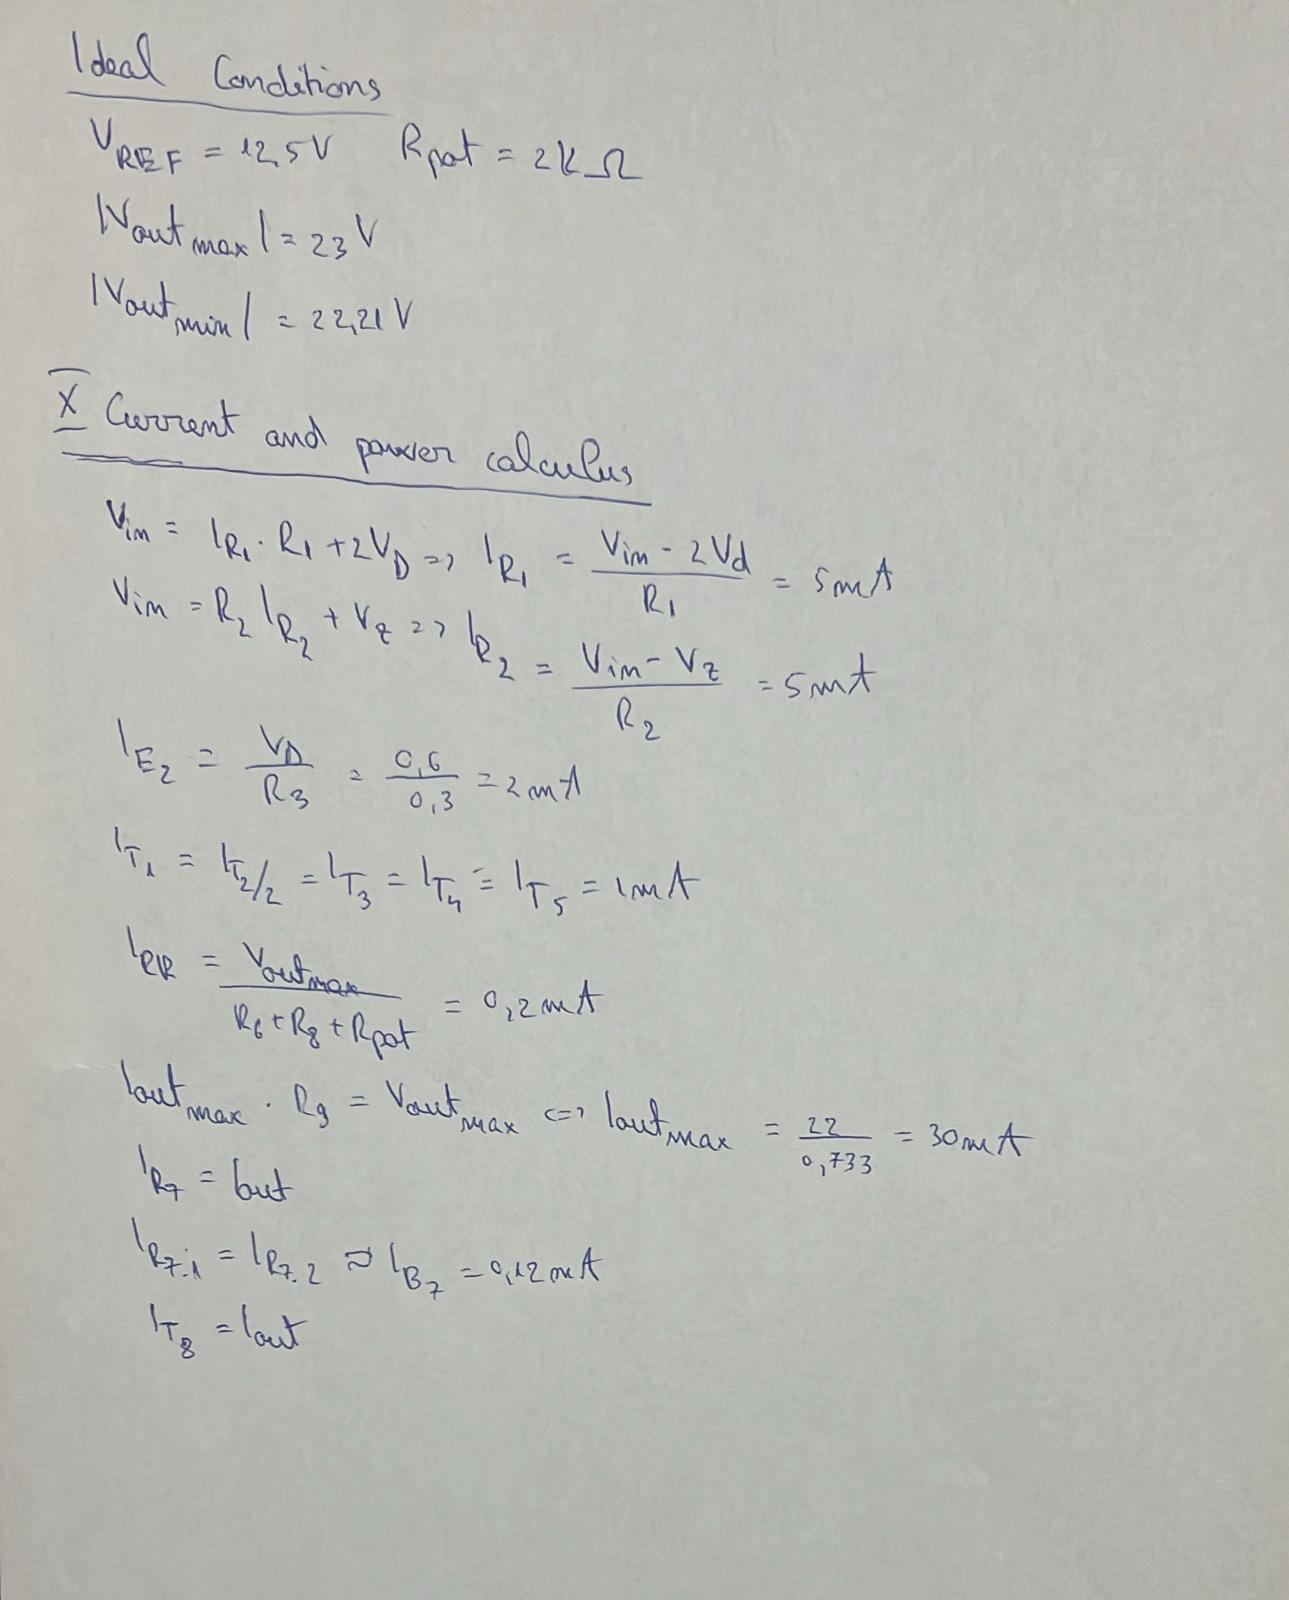 Ideal Conditions
V_REF = 12,5V R_pot = 2kΩ
|Vout_max| = 23 V
|Vout_min| = 22,21 V
X Current and power calculus
Vin = I_R1 · R1 + 2V_D => I_R1 = (Vin - 2Vd)/R1 = 5mA
Vin = R2 I_R2 + Vz => I_R2 = (Vin - Vz)/R2 = 5mA
I_E2 = V_D/R3 = 0,6/0,3 = 2mA
I_T1 = I_T2/2 = I_T3 = I_T4 = I_T5 = 1mA
I_RR = Vout_max/(R6 + R8 + Rpot) = 0,2mA
Iout_max · R9 = Vout_max <=> Iout_max = 22/0,733 = 30mA
I_R7 = Iout
I_R7.1 = I_R7.2 ≈ I_B7 = 0,12mA
I_T8 = Iout